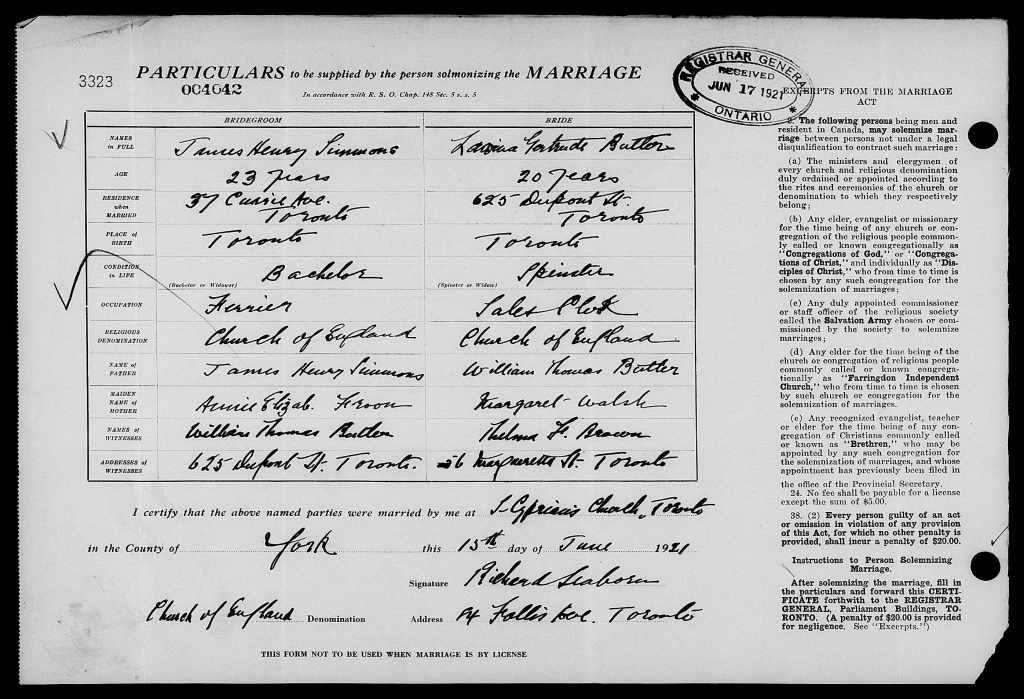 3323
PARTICULARS to be supplied by the person solmonizing the MARRIAGE
004642
In accordance with R. S. O. Chap. 148 Sec. 5 s. s. 5
REGISTRAR GENERAL
RECEIVED
JUN 17 1921
ONTARIO
BRIDEGROOM BRIDE
NAMES in FULL James Henry Simmons Gertrude Butler
AGE 23 years 20 years
RESIDENCE when MARRIED 37 Currie Ave. Toronto 625 Dupont St. Toronto
PLACE of BIRTH Toronto Toronto
CONDITION in LIFE (Bachelor or Widower) Bachelor (Spinster or Widow) Spinster
OCCUPATION Ferrier Sales Clerk
RELIGIOUS DENOMINATION Church of England Church of England
NAME of FATHER James Henry Simmons William Thomas Butler
MAIDEN NAME of MOTHER Annie Elizab. Margaret Walsh
NAMES of WITNESSES William Thomas Butler Thelma F. Brown
ADDRESSES of WITNESSES 625 Dupont St. Toronto. 56 Margueretta St. Toronto
I certify that the above named parties were married by me at S. Cyprian's Church, Toronto
in the County of York this 15th day of June 1921
Signature Richard Seaborn
Church of England Denomination Address 94 Follis Ave. Toronto
THIS FORM NOT TO BE USED WHEN MARRIAGE IS BY LICENSE
EXCERPTS FROM THE MARRIAGE
ACT
2. The following persons being men and
resident in Canada, may solemnize mar-
riage between persons not under a legal
disqualification to contract such marriage:
(a) The ministers and clergymen of
every church and religious denomination
duly ordained or appointed according to
the rites and ceremonies of the church or
denomination to which they respectively
belong;
(b) Any elder, evangelist or missionary
for the time being of any church or con-
gregation of the religious people common-
ly called or known congregationally as
"Congregations of God," or "Congrega-
tions of Christ," and individually as "Dis-
ciples of Christ," who from time to time is
chosen by any such congregation for the
solemnization of marriages;
(c) Any duly appointed commissioner
or staff officer of the religious society
called the Salvation Army chosen or com-
missioned by the society to solemnize
marriages;
(d) Any elder for the time being of the
church or congregation of religious people
commonly called or known congrega-
tionally as "Farringdon Independent
Church," who from time to time is chosen
by such church or congregation for the
solemnization of marriages.
(e) Any recognized evangelist, teacher
or elder for the time being of any con-
gregation of Christians commonly called
or known as "Brethren," who may be
appointed by any such congregation for
the solemnization of marriages, and whose
appointment has previously been filed in
the office of the Provincial Secretary.
24. No fee shall be payable for a license
except the sum of $5.00.
38. (2) Every person guilty of an act
or omission in violation of any provision
of this Act, for which no other penalty is
provided, shall incur a penalty of $20.00.
Instructions to Person Solemnizing
Marriage.
After solemnizing the marriage, fill in
the particulars and forward this CERTI-
FICATE forthwith to the REGISTRAR
GENERAL, Parliament Buildings, TO-
RONTO. (A penalty of $20.00 is provided
for negligence. See "Excerpts.")